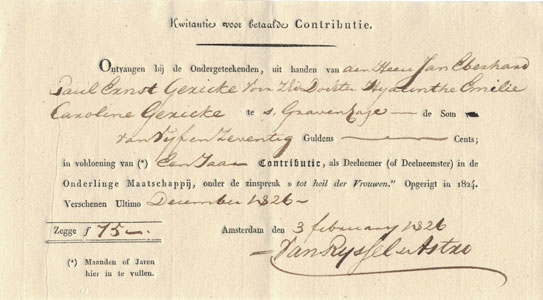 Kwitantie voor betaalde Contributie.
Ontvangen bij de Ondergeteekenden, uit handen van den Heer Jan Eberhard
Paul Ernst Gericke voor Zijn Dochter Hyacinthe Emilie
Caroline Gericke te s, Gravenhage — de Som
van Vijf en Zeventig Guldens — Cents;
in voldoening van (*) Een Jaar Contributie, als Deelnemer (of Deelneemster) in de
Onderlinge Maatschappij, onder de zinspreuk » tot heil der Vrouwen." Opgerigt in 1824.
Verschenen Ultimo December 1826 —
Zegge f 75 —.
Amsterdam den 3 february 1826
(*) Maanden of Jaren
hier in te vullen.